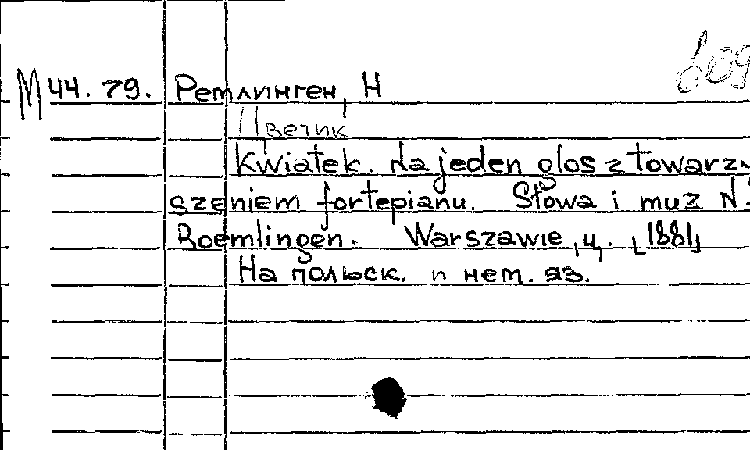 809
М 44.79. Ремлинген, Н
Цветик
Kwiatek. Na jeden glos z towarzy
szeniem fortepianu. Słowa i muz N.
Roemlingen. Warszawie, ц. [1881]
На польск. и нем. яз.